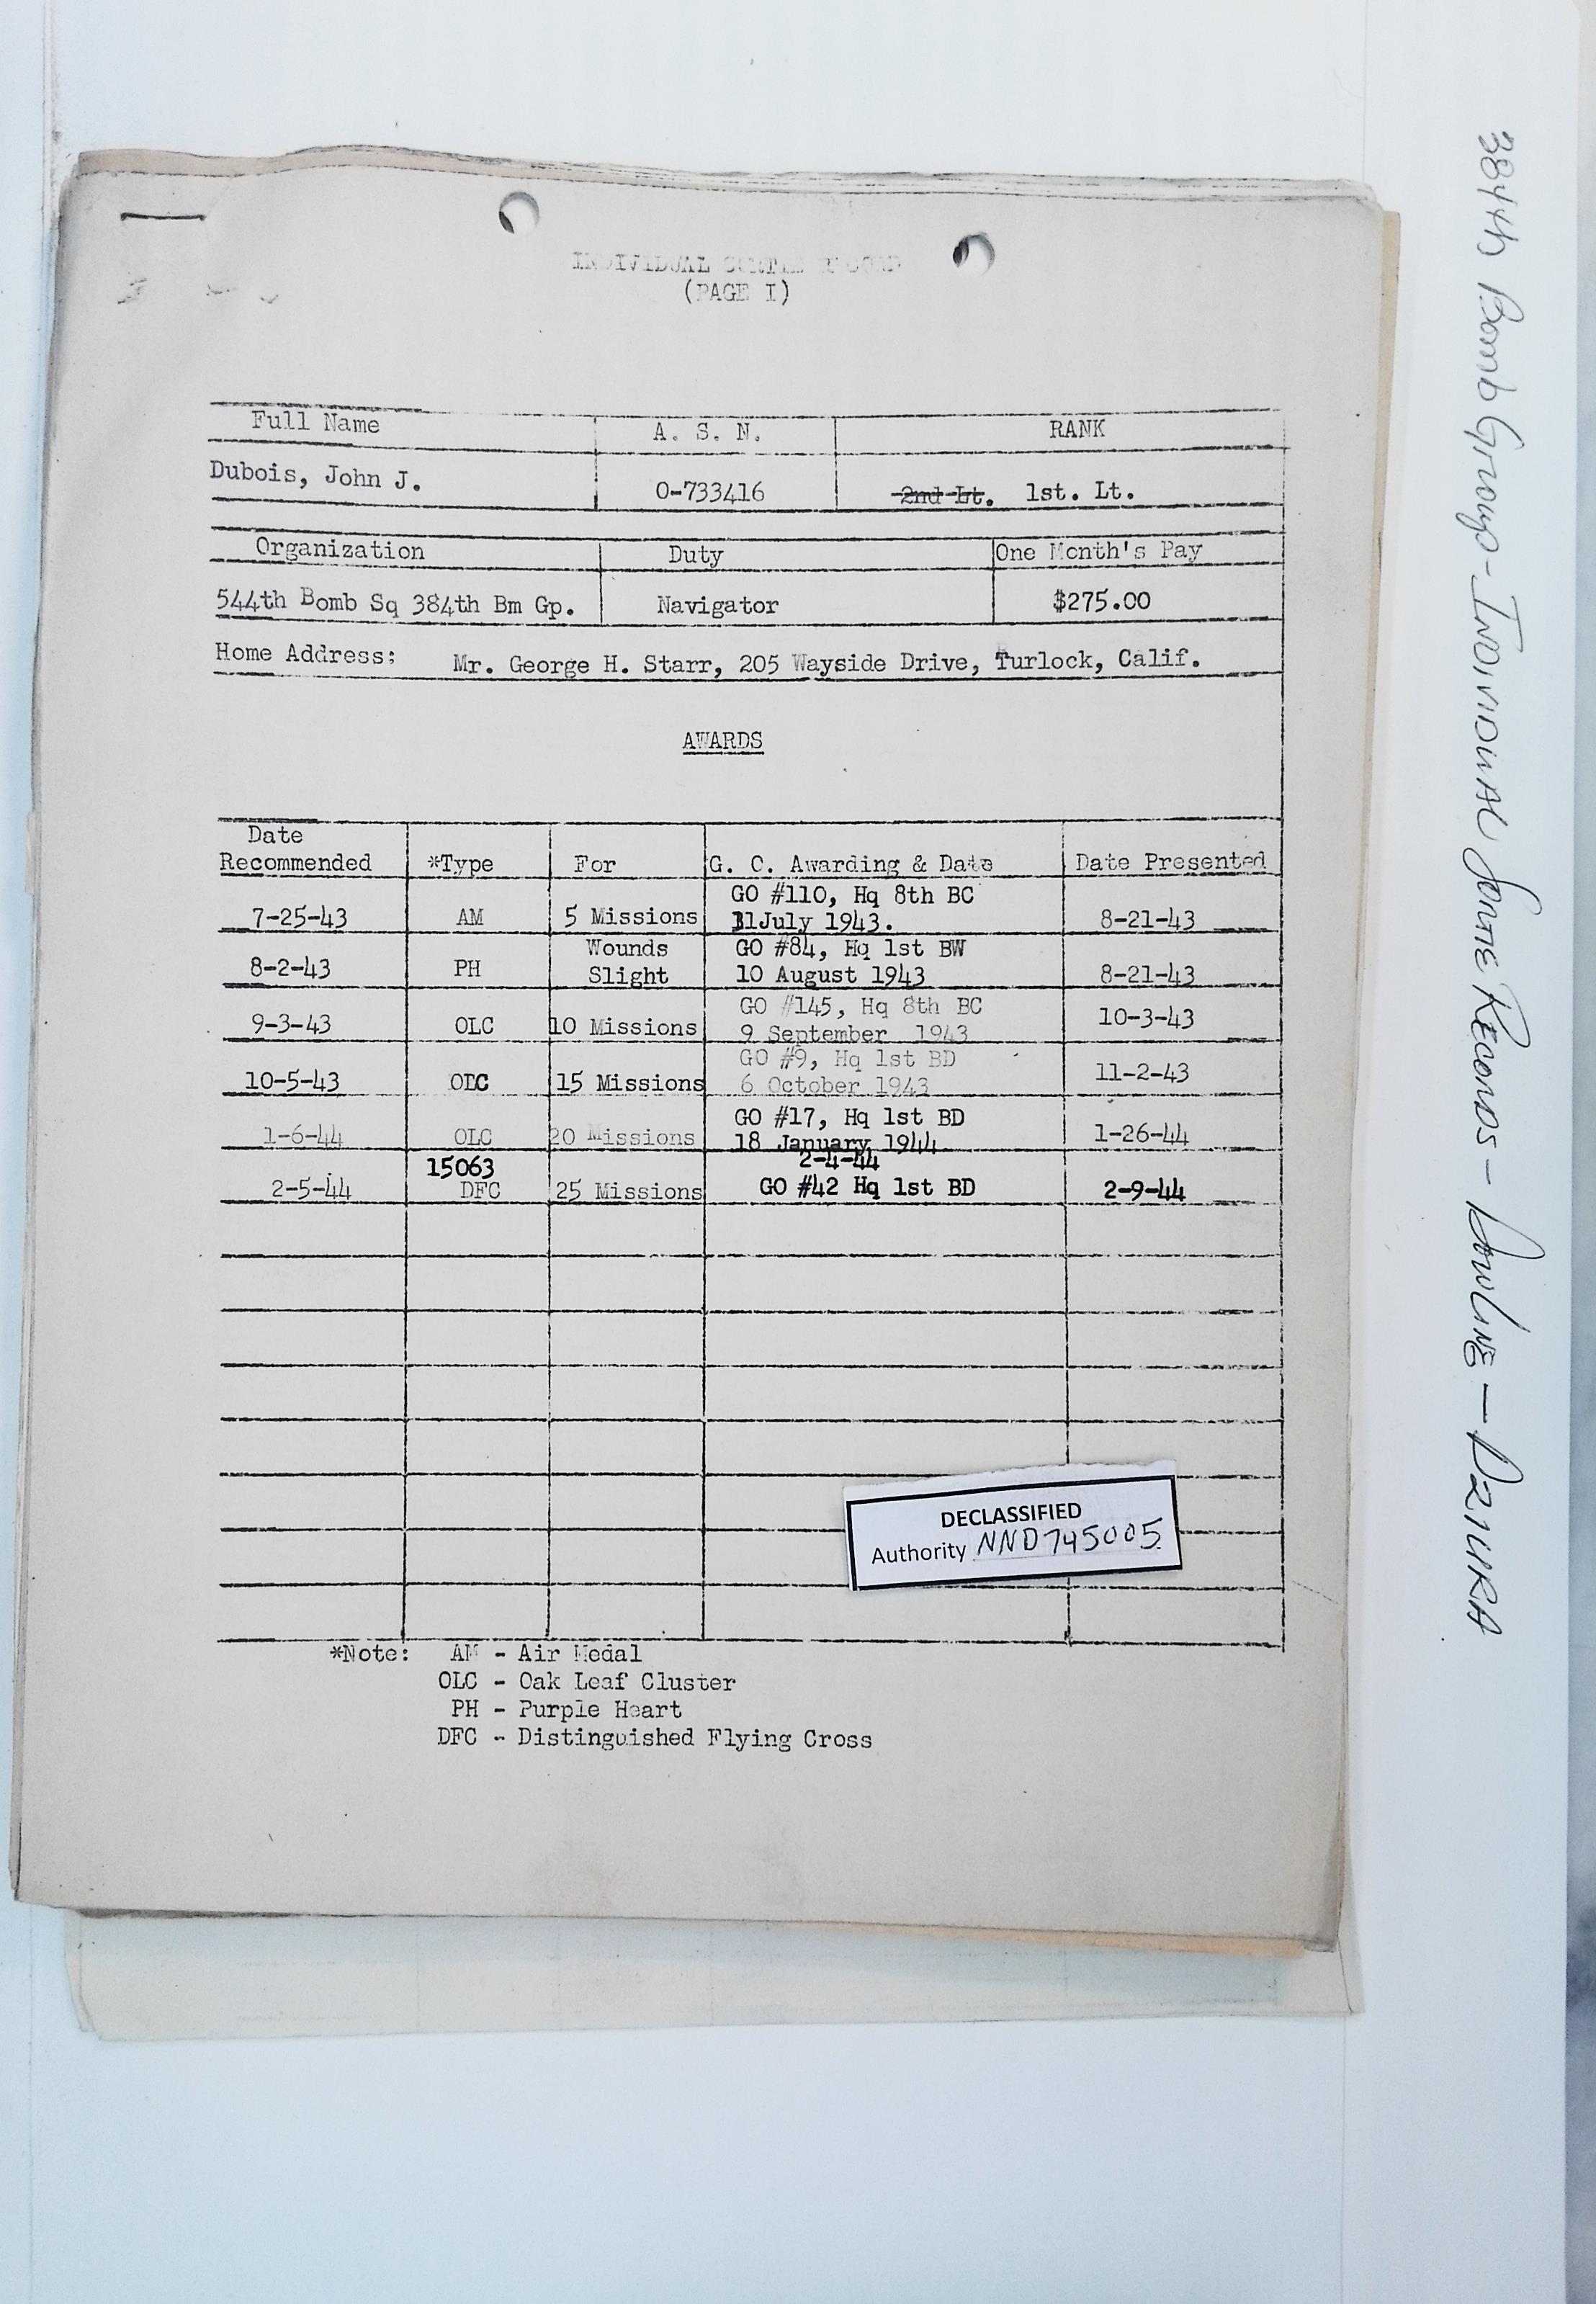 INDIVIDUAL SORTIE RECORD
(PAGE I)
Full Name A. S. N. RANK
Dubois, John J. O-733416 2nd Lt. 1st. Lt.
Organization Duty One Month's Pay
544th Bomb Sq 384th Bm Gp. Navigator $275.00
Home Address: Mr. George H. Starr, 205 Wayside Drive, Turlock, Calif.
AWARDS
Date
Recommended *Type For G. C. Awarding & Date Date Presented
GO #110, Hq 8th BC
7-25-43 AM 5 Missions 31July 1943. 8-21-43
Wounds GO #84, Hq 1st BW
8-2-43 PH Slight 10 August 1943 8-21-43
GO #145, Hq 8th BC
9-3-43 OLC 10 Missions 9 September 1943 10-3-43
GO #9, Hq 1st BD
10-5-43 OLC 15 Missions 6 October 1943 11-2-43
GO #17, Hq 1st BD
1-6-44 OLC 20 Missions 18 January 1944 1-26-44
15063 2-4-44
2-5-44 DFC 25 Missions GO #42 Hq 1st BD 2-9-44
DECLASSIFIED
Authority NND745005
*Note: AM - Air Medal
OLC - Oak Leaf Cluster
PH - Purple Heart
DFC - Distinguished Flying Cross
384th Bomb Group - Individual Sortie Records - Dowling - Dziura